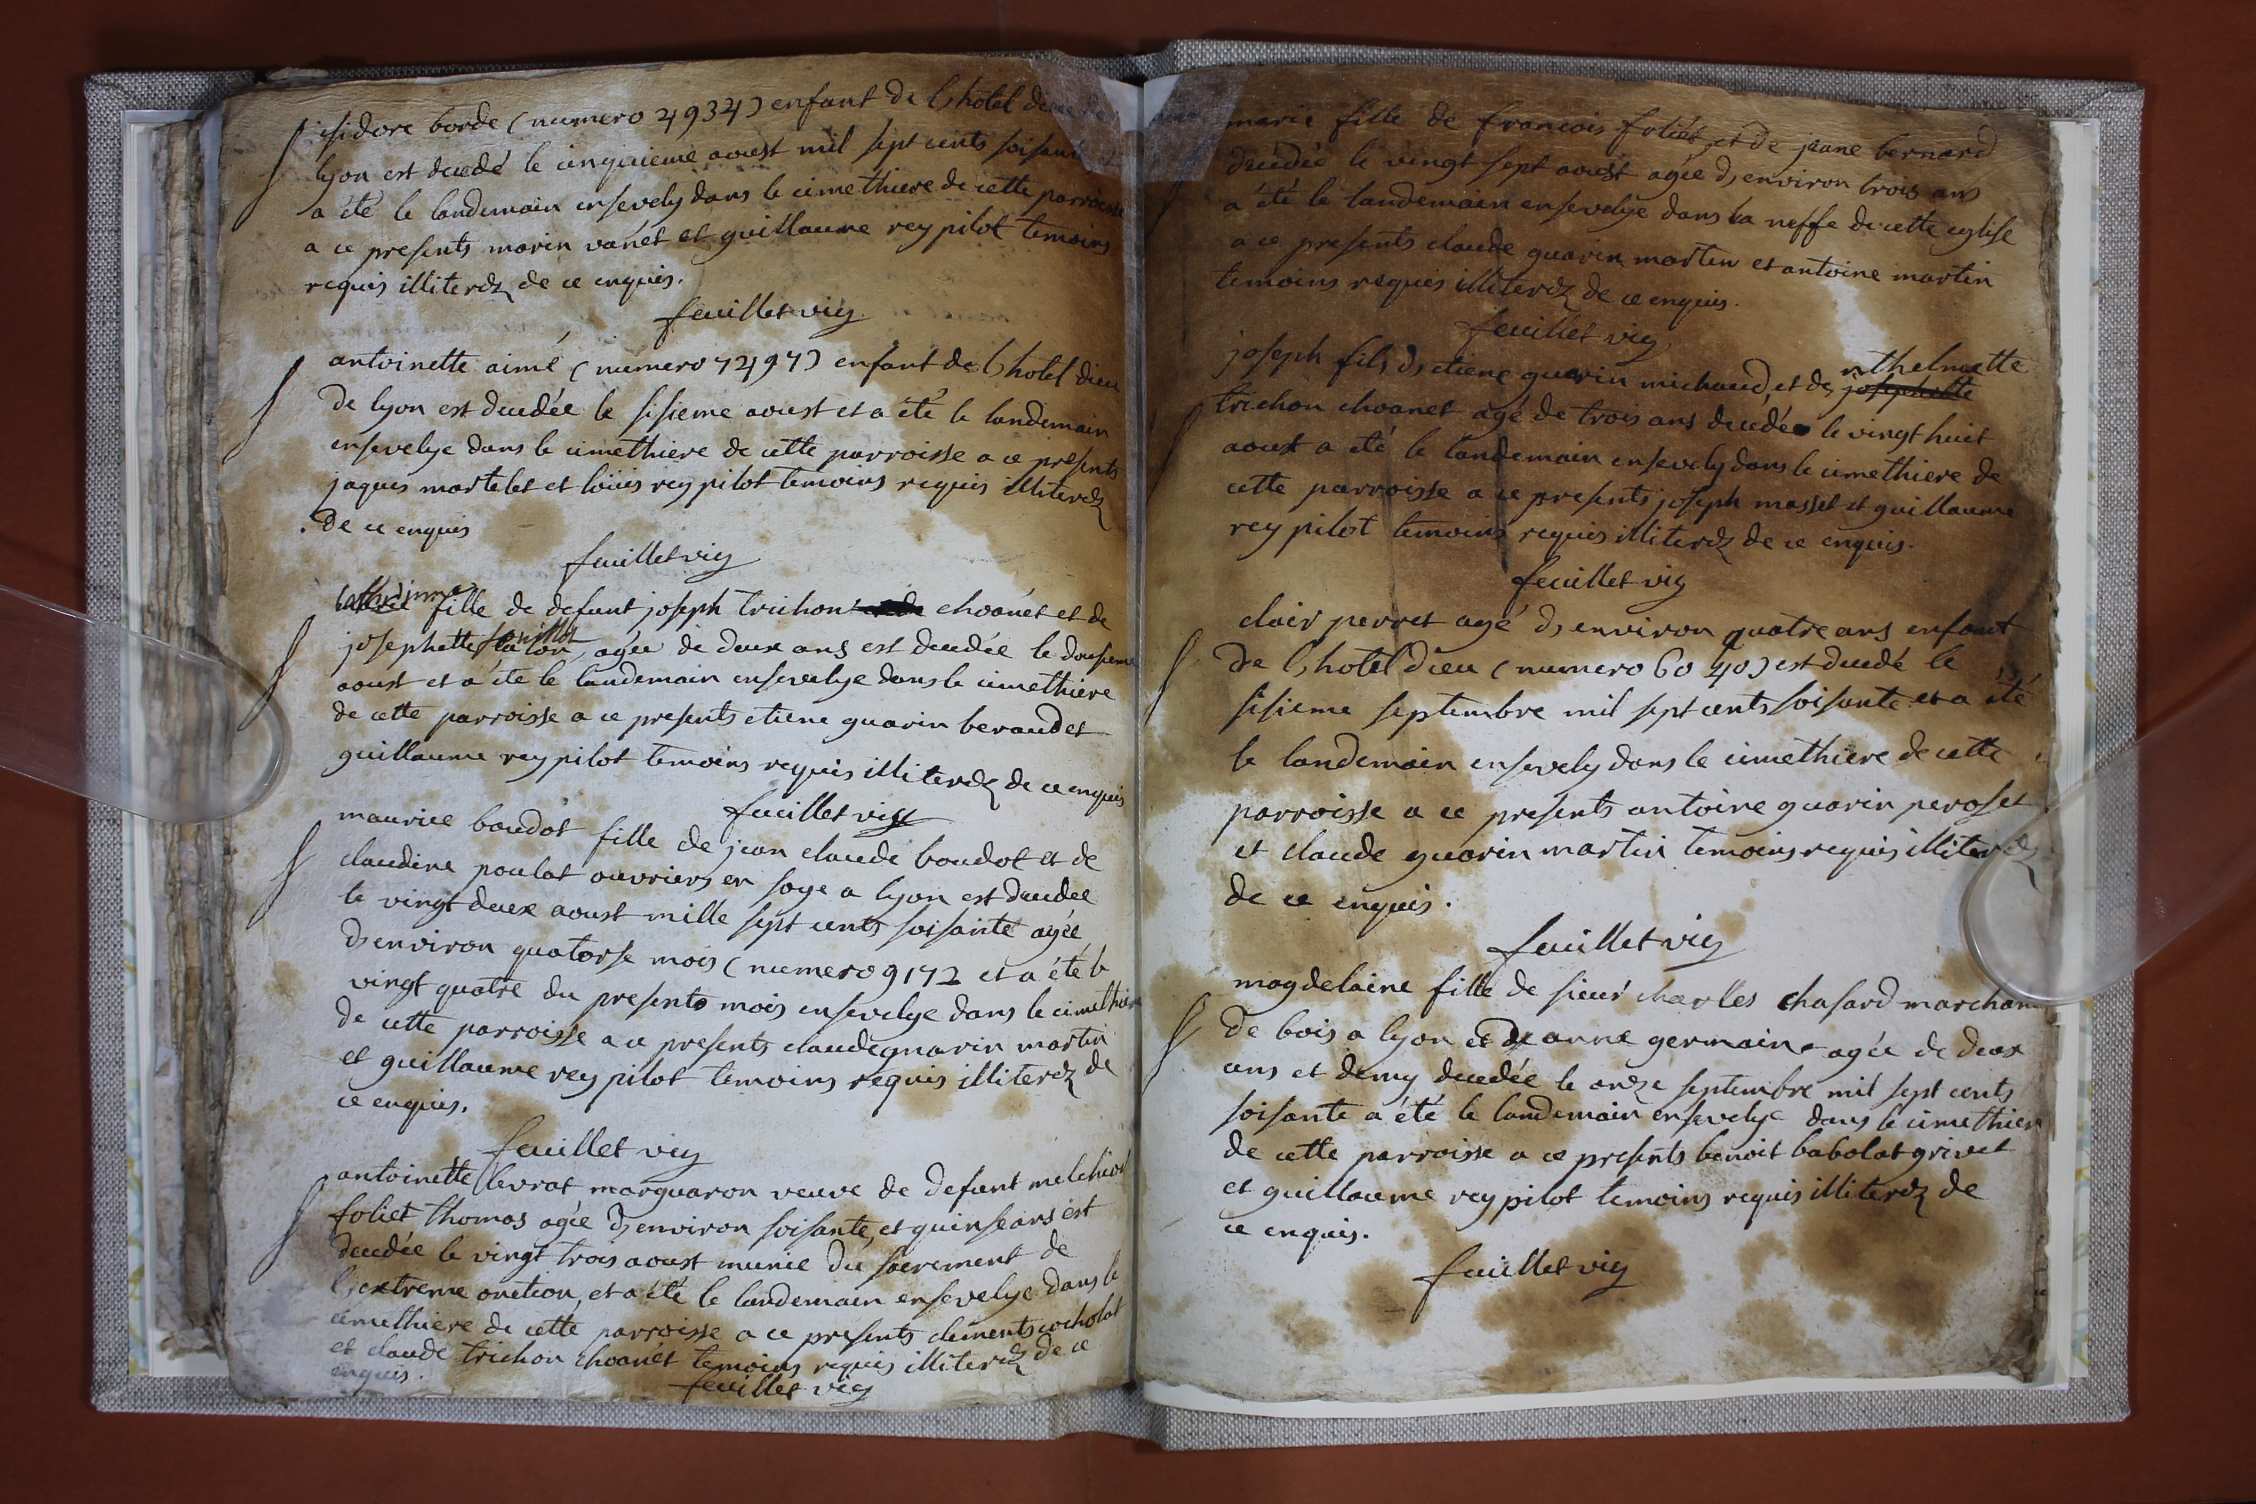 isidore borde (numero 4934) enfant de l'hotel dieu de
lyon est decedé le cinquieme aoust mil sept cents soisante
a été le landemain ensevely dans le cimethiere de cette parroisse
a ce presents marin vanét et guillaume rey pilot temoins
requis illiterez de ce enquis.
feuillet vic
antoinette aimé (numero 7497) enfant de l'hotel dieu
de lyon est decedée le sisieme aoust et a été le landemain
ensevelye dans le cimethiere de cette parroisse a ce presents
jaques martelet et loüis rey pilot temoins requis illiterez
de ce enquis
feuillet vic
fille de defunt joseph trichon choanét et de
josephette agée de deux ans est decedée le dousieme
aoust et a été le landemain ensevelye dans le cimethiere
de cette parroisse a ce presents etiene guarin beraudet
guillaume rey pilot temoins requis illiterez de ce enquis
feuillet vic
maurice boudot fille de jean claude boudot et de
claudine poulat ouvriers en soye a lyon est decedee
le vingt deux aoust mille sept cents soisante agée
d'environ quatorse mois (numero 9172 et a été le
vingt quatre du presents mois ensevelye dans le cimethiere
de cette parroisse a ce presents claude guarin martin
et guillaume rey pilot temoins requis illiterez de
ce enquis.
feuillet vic
antoinétte levrat marguaron veuve de defunt melchior
foliet thomas agée d'environ soisante, et quinse ans est
decedée le vingt trois aoust munie du sacrement de
l'extreme onction, et a été le landemain ensevelye dans le
cimethiere de cette parroisse a ce presents clements cocholat
et claude trichon choanét temoins requis illiterez de ce
enquis.
feuillet vic
marie fille de francois foliét et de jeane bernard
decedée le vingt sept aoust agée d'environ trois ans
a été le landemain ensevelye dans la neffe de cette eglise
a ce presents claude guarin martin et antoine martin
temoins requis illiterez de ce enquis.
feuillet vic
joseph fils d'etiene guarin michaud, et de josephette nthelmette
trichon choanet agé de trois ans decedé le vingt huit
aoust a été le landemain ensevely dans le cimethiere de
cette parroisse a ce presents joseph masset et guillaume
rey pilot temoins requis illiterez de ce enquis.
feuillet vic
clair perret agé d'environ quatre ans enfant
de l'hotel dieu (numero 6040) est decedé le
sisieme septembre mil sept cents soisante et a été
le landemain ensevely dans le cimethiere de cette
parroisse a ce presents antoine guarin peroset
et claude guarin martin temoins requis illiterez
de ce enquis.
feuillet vic
magdelaine fille de sieur charles chasard marchand
de bois a lyon et de anne germain agée de deux
ans et demy decedée le onze septembre mil sept cents
soisante a été le landemain ensevelye dans le cimethiere
de cette parroisse a ce presents benoit babolat grivet
et guillaume rey pilot temoins requis illiterez de
ce enquis.
feuillet vic